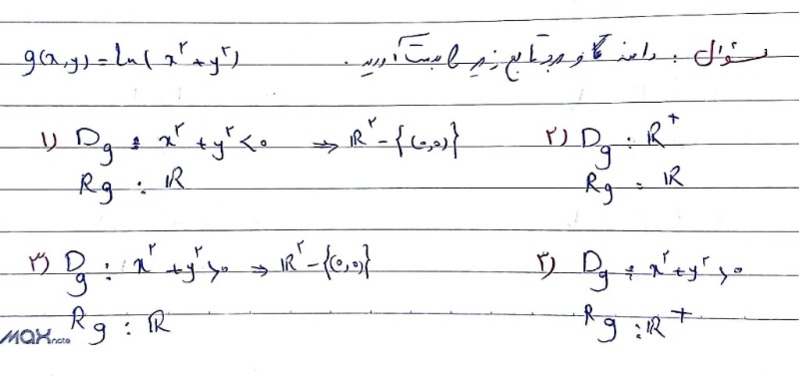 سؤال : دامنه و برد تابع زیر را بدست آورید.
g(x,y)=ln(x²+y²)
۱) D_g : x²+y²<0 ⇒ ℝ²-{(0,0)}
R_g : ℝ
۲) D_g : ℝ⁺
R_g : ℝ
۳) D_g : x²+y²>0 ⇒ ℝ²-{(0,0)}
R_g : ℝ
۴) D_g : x²+y²>0
R_g : ℝ⁺
MAX note